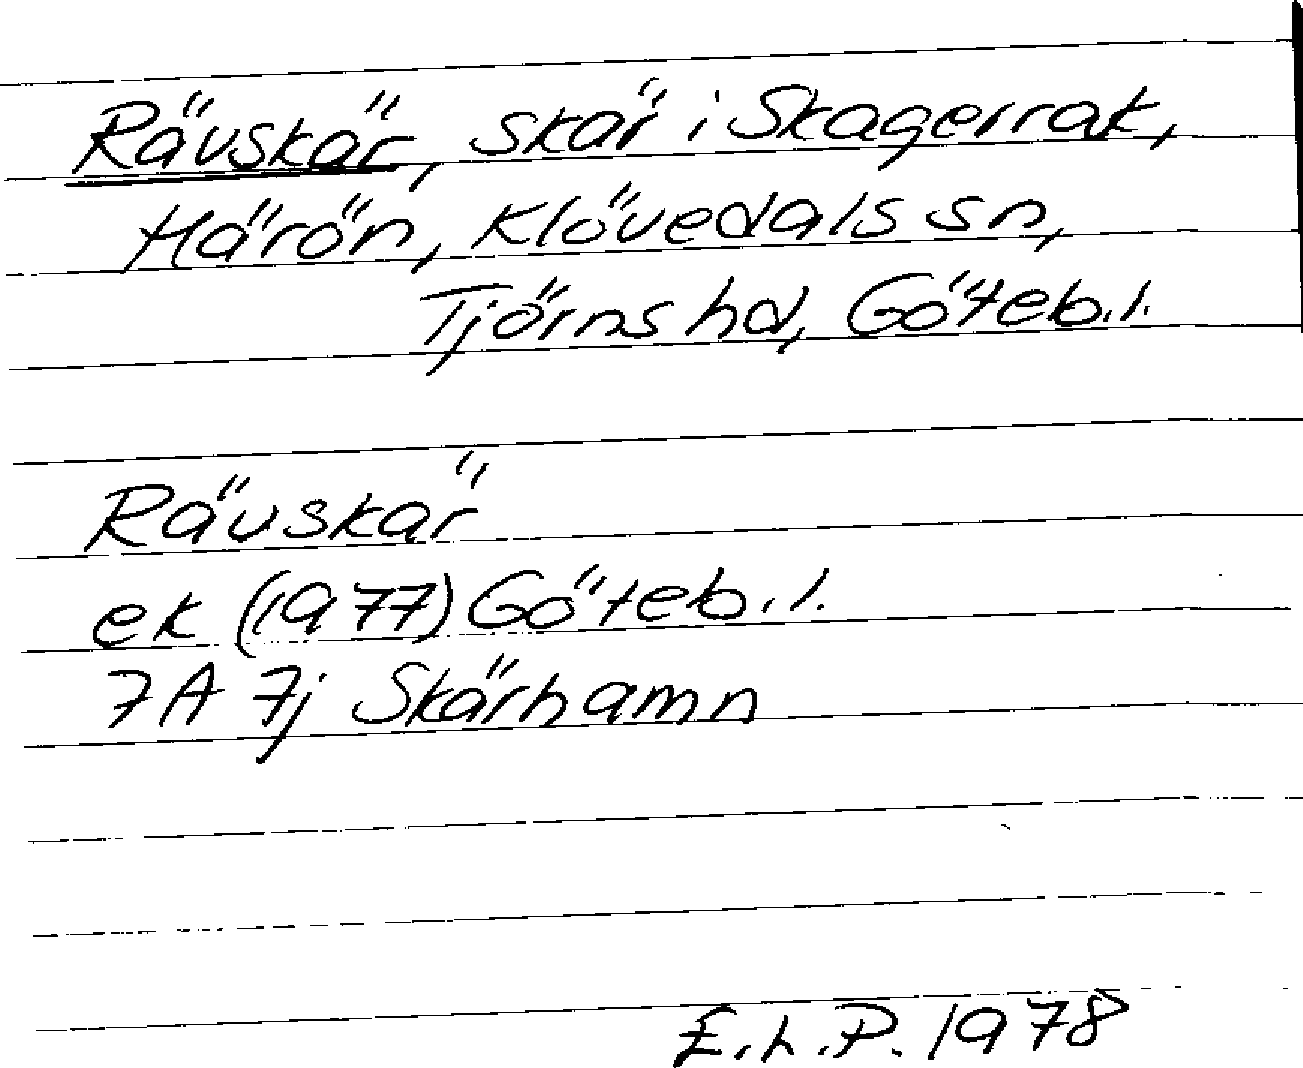 Rävskär, skär i Skagerrak,
Härön, Klövedals sn,
Tjörns hd, Göteb.l.
Rävskär
ek (1977) Göteb.l.
7A 7j Skärhamn
E.L.P. 1978